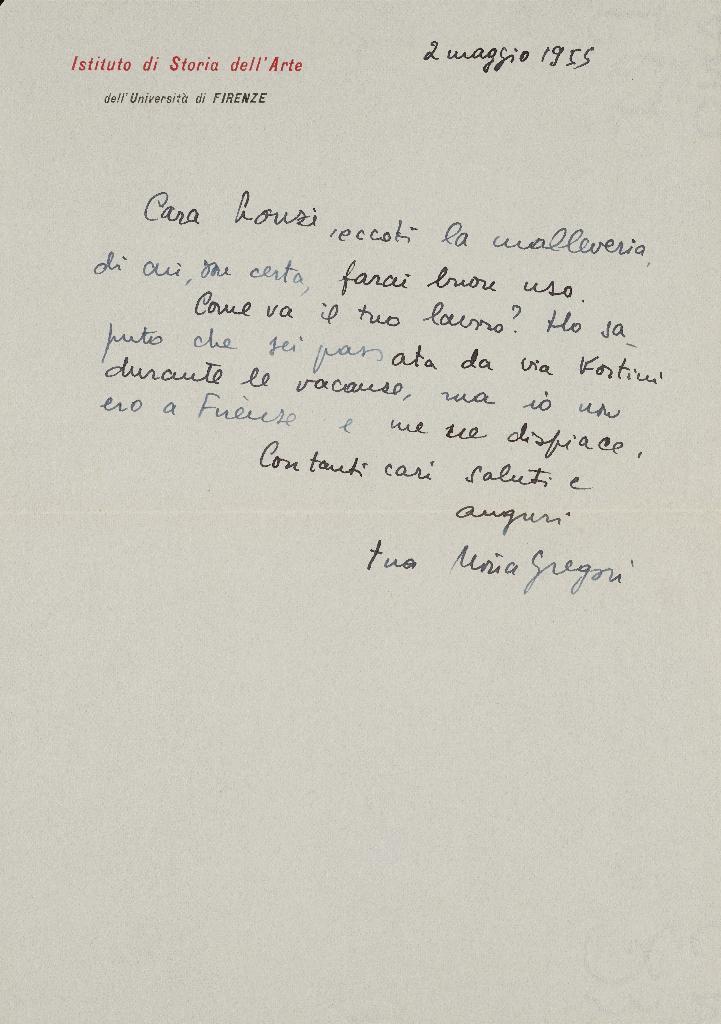 Istituto di Storia dell'Arte
dell'Università di FIRENZE
2 maggio 1955
Cara Lonzi, eccoti la malleveria,
di cui, son certa, farai buon uso.
Come va il tuo lavoro? Ho sa_
puto che sei passata da via Fortini
durante le vacanze, ma io non
ero a Firenze e me ne dispiace.
Con tanti cari saluti e
auguri
tua Mina Gregori